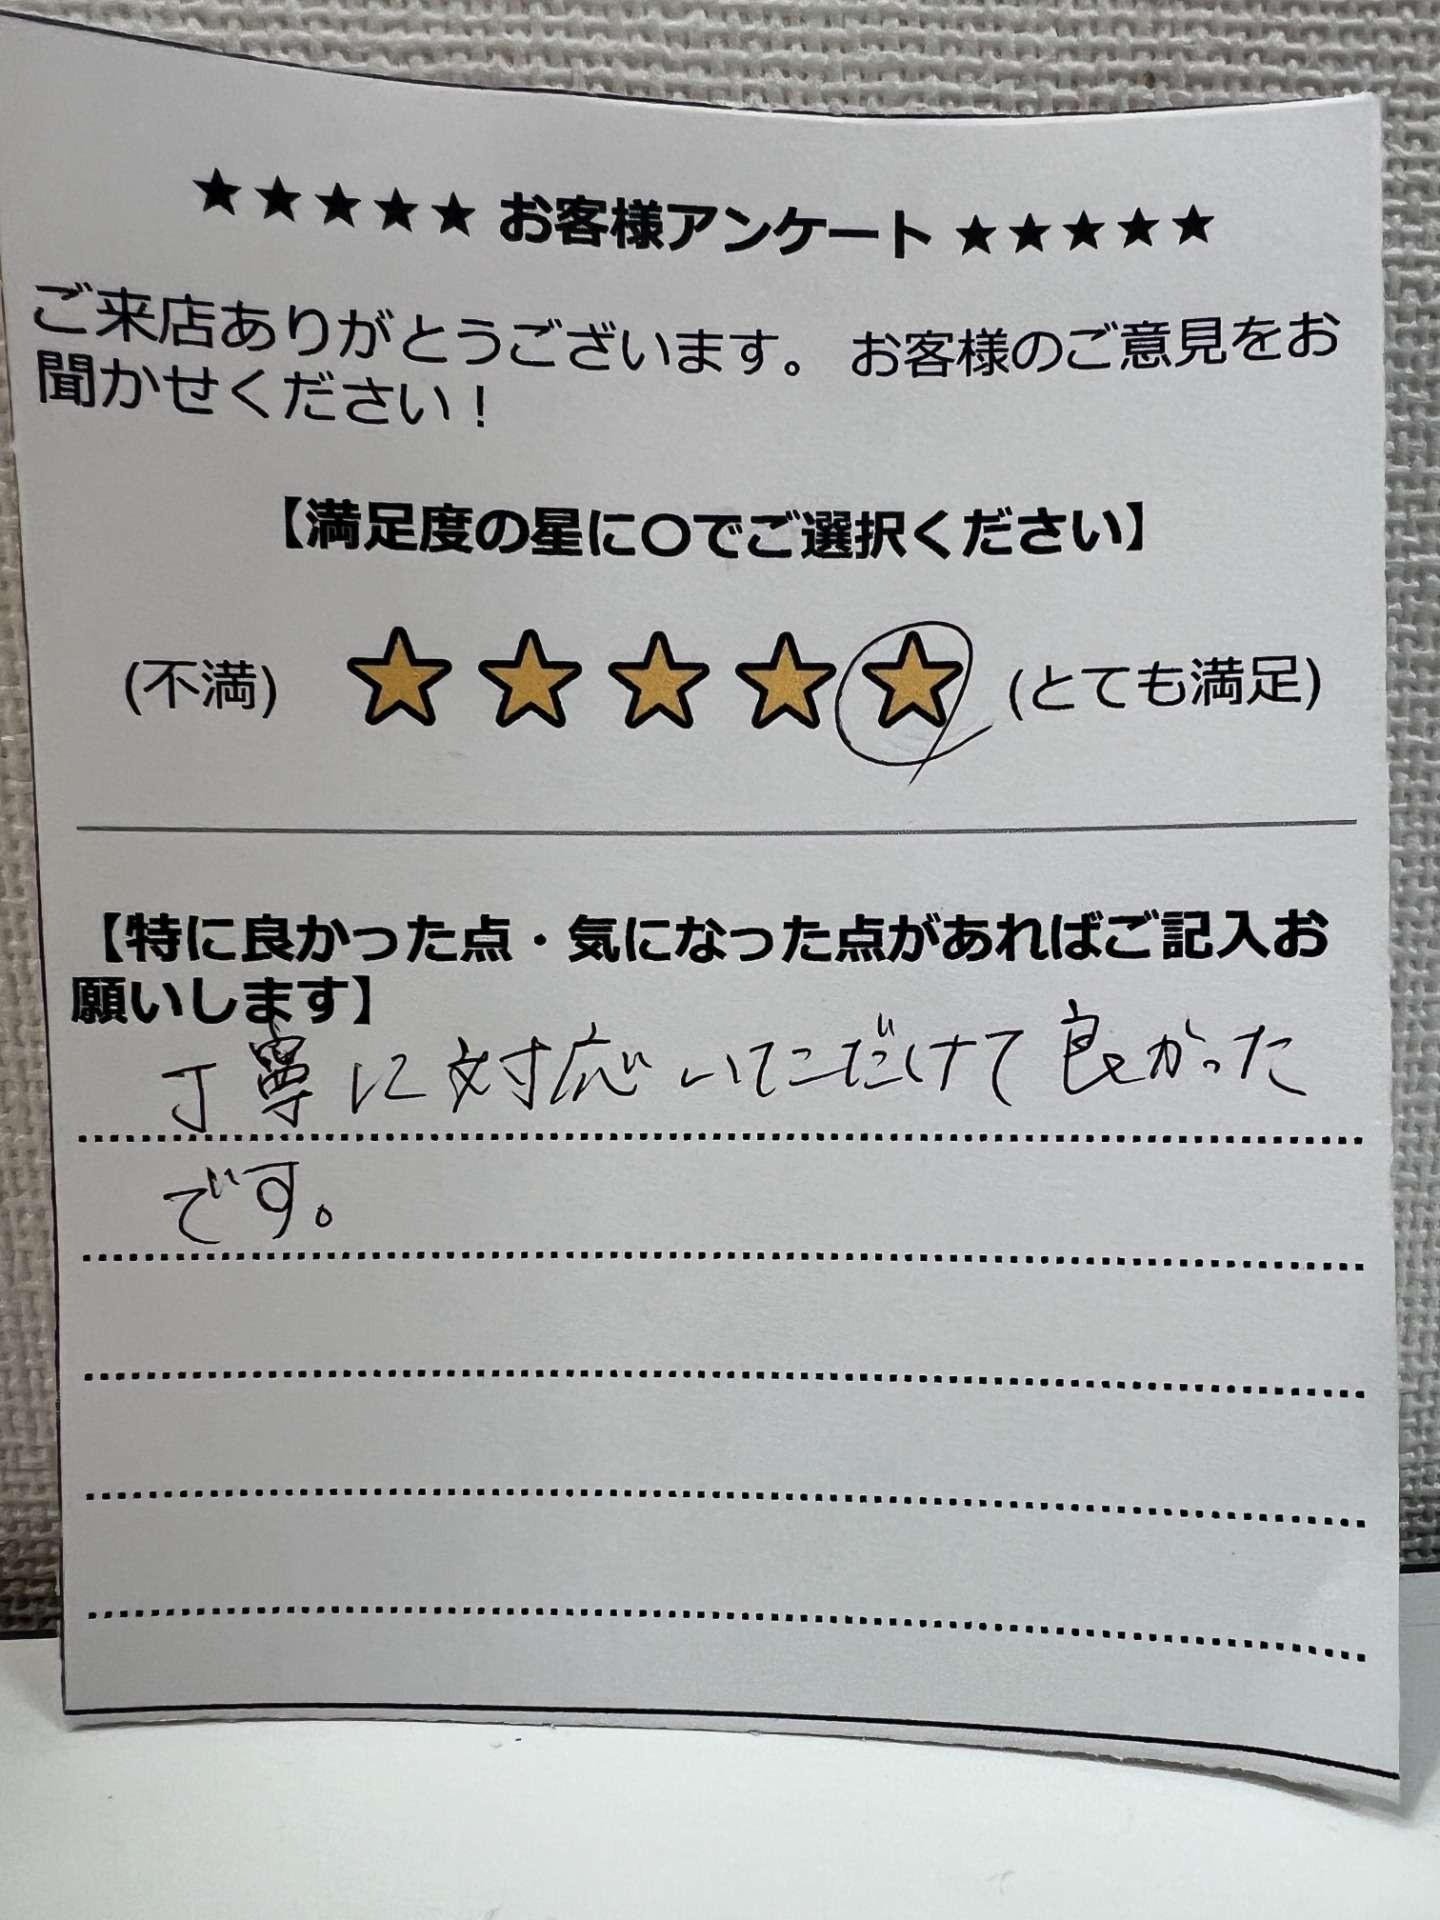 ★★★★★ お客様アンケート ★★★★★
ご来店ありがとうございます。 お客様のご意見をお
聞かせください！
【満足度の星に〇でご選択ください】
(不満) ★★★★★ (とても満足)
【特に良かった点・気になった点があればご記入お
願いします】
丁寧に対応いただけて良かった
です。